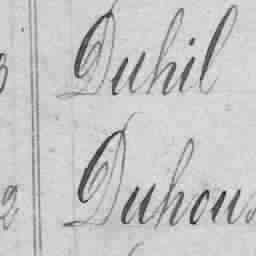 Duhil
2 Duhous